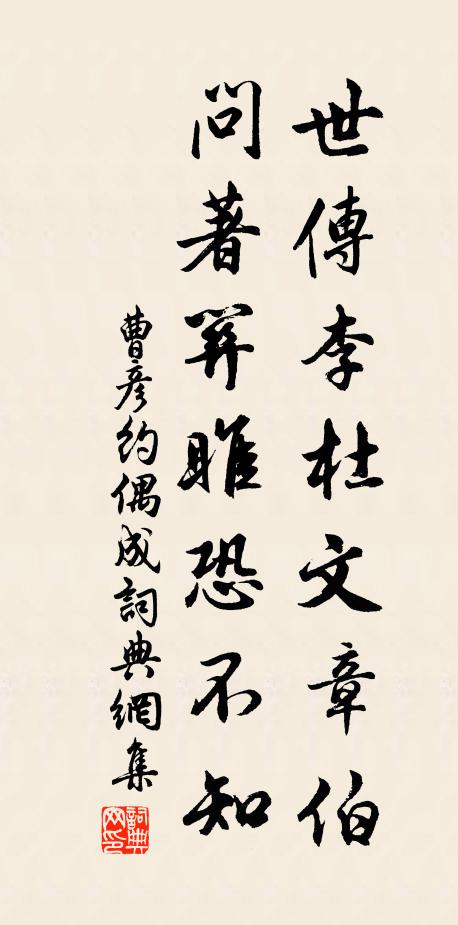 世傳李杜文章伯
問著關雎恐不知
曹彥約偶成詞典網集
詞典網印